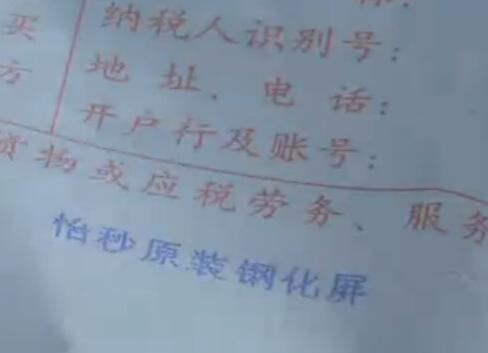 称：
买 纳税人识别号：
方 地址、电话：
开户行及账号：
货物或应税劳务、服务
怡秒原装钢化屏